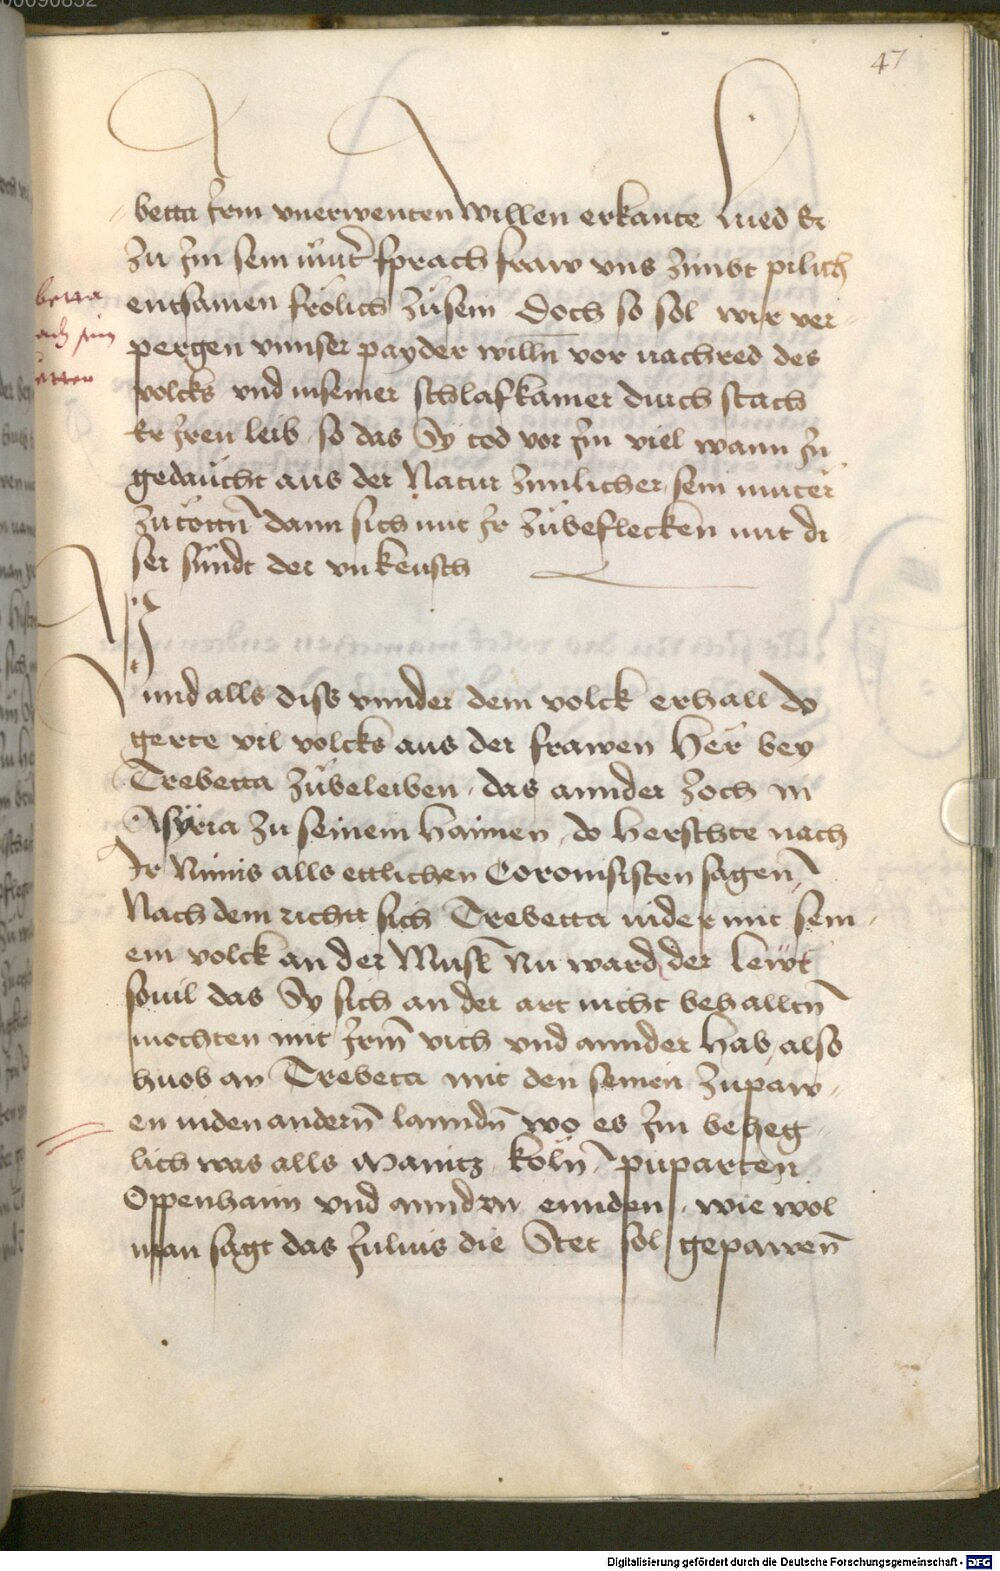 47
betta Jrm vnerwenten willen erkante lued Er
zu Jm sein muter sprach fraw vns zimbt pilich
entsamen frölich zusein doch so sol wir ver
pergen vnnser payder willn vor nachred des
volcks vnd inseiner schlafkamer durch stach
Er Jren leib so das Sy tod vor Jm viel wann Jn
gedaücht aus der Natur zimlicher sein muter
zutottn dann sich mit Jr zubeflecken mit di
ser sündt der vnkeusch
betta
vnnd alls diss vnnder dem volck erhall do
gerte vil volcks aus der frawen Her bey
Trebetta zubeleiben das annder zoch in
Asyria zu seinem haimen do herschte nach
Jr Ninis alls ettlichen Coronisisten sagen
Nach dem richtt sich Trebetta nider mit sein
em volck an der Musl Nu ward der lewt
souil das Sy sich an der art nicht behalltn
mochten mit Jrm vich vnd annder hab also
huob an Trebeta mit den seinen zupaw
en inden andern lanndn wo es Jm beheg
lich was alls Mainitz köln puparten
Oppenhaim vnd anndrn ennden wie wol
man sagt das Julius die Stet sol gepawen
Digitalisierung gefördert durch die Deutsche Forschungsgemeinschaft - DFG